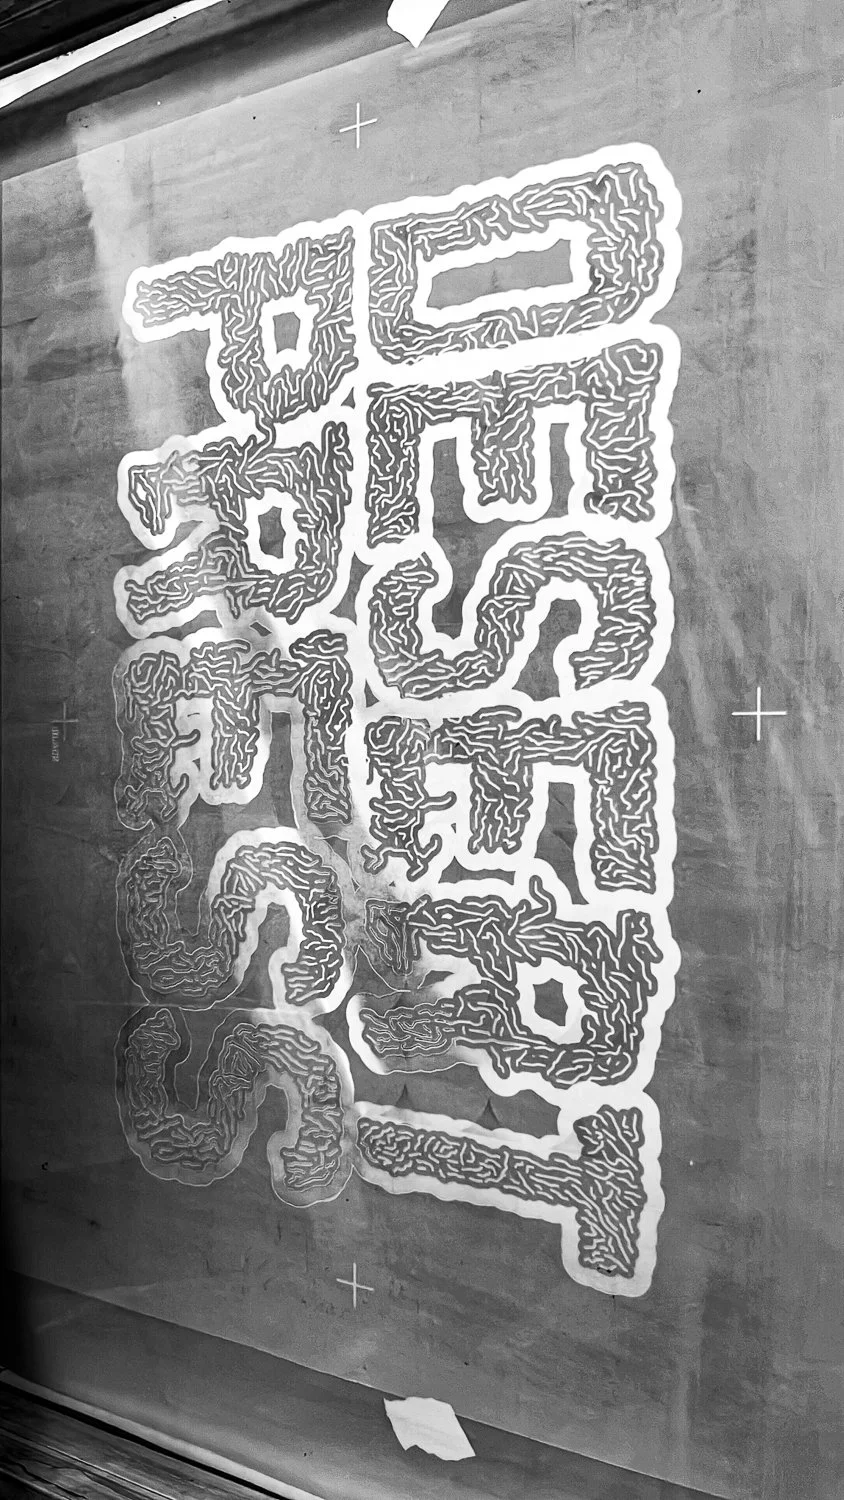 DESERT
PRESS